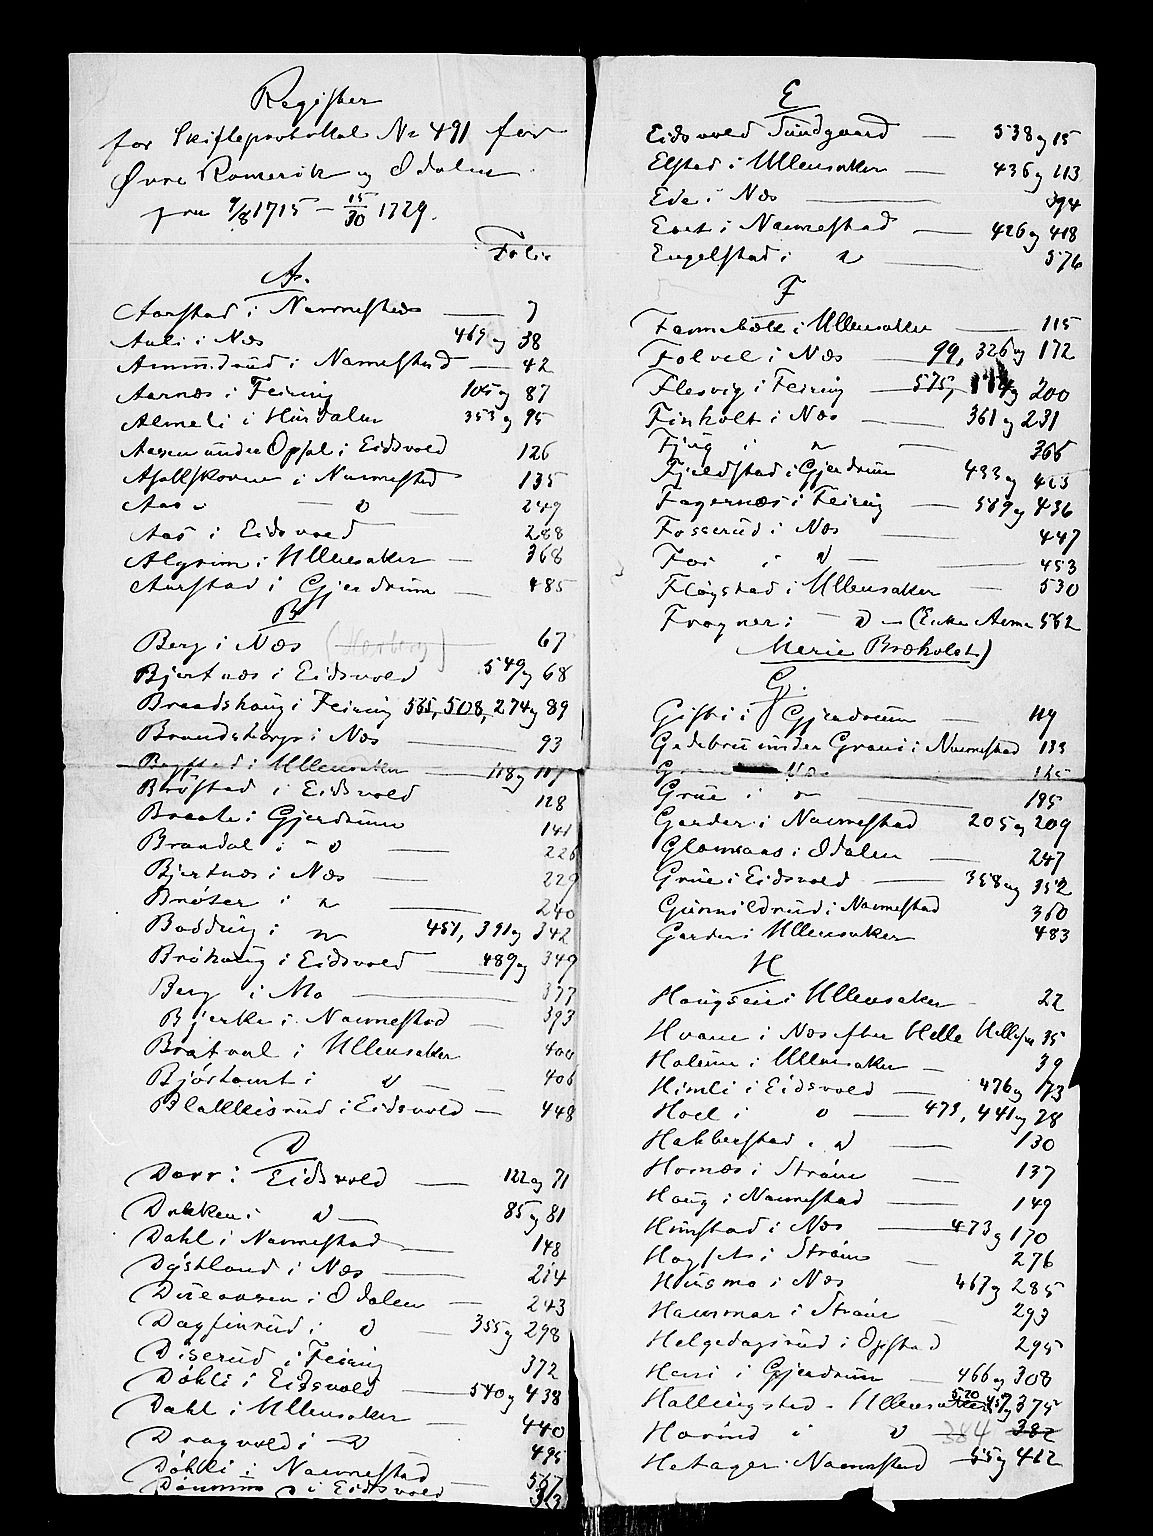 Register
for Skifteprotokol No 491 for
Øvre Romerik og Odalen
fra 9/8 1715 – 15/30 1729.
Folio
A.
Aarstad i Nannestad — 7
Auli i Næs 469 og 38
Ammundrud i Nannestad — 42
Aarnæs i Feiring 105 og 87
Almeli i Hurdalen 353 og 95
Aasen under Opsal i Eidsvold 126
i Nannestad 135
Aas " — " — 249
Aas i Eidsvold 288
Algrim i Ullensaker — 368
Aarstad i Gjerdrum — 485
B
Berg i Næs (Nerberg) — 67
Bjertnæs i Eidsvold 549 og 68
Brandshaug i Feiring 565, 508, 274 og 89
Brandstorp i Næs — 93
i Ullensaker — 118 og 117
Brøstad i Eidsvold 128
Braate i Gjerdrum 141
Brandal i " — 226
Bjertnæs i Næs — 229
Brøter i " — 240
Bodding i " 451, 391 og 342
Brøhaug i Eidsvold — 489 og 349
Berg i Mo — 377
Bjerke i Nannestad — 393
Bratval i Ullensaker 400
i " — 406
Blakkisrud i Eidsvold — 448
D
Dorr i Eidsvold — 122 og 71
Dokken i " — 85 og 81
Dahl i Nannestad — 148
Dystland i Næs — 214
i Odalen — 243
Dagfinrud i " — 355 og 298
Diserud i Feiring 372
Døhli i Eidsvold — 540 og 438
Dahl i Ullensaker — 440
Dragvold i " 495
Døhli i Nannestad — 567
i Eidsvold 313
E
Eidsvold Sundgaard — 538 og 15
Elstad i Ullensaker — 436 og 113
Ede i Næs — 394
i Nannestad — 426 og 418
Engelstad i " — 576
F
i Ullensaker — 115
Folvel i Næs — 99, 326 og 172
Flesvig i Feiring — 575, og 200
Finholt i Næs — 361 og 231
Fjug i " — 366
Fjeldstad i Gjerdrum 433 og 413
Fagernæs i Feiring — 569 og 436
Fosserud i Næs — 447
i " — 453
Fløgstad i Ullensaker — 530
Frogner i — " — (Enke Anne 562
Merie Bræholdt)
G.
i Gjerdrum — 119
under Grani i Nannestad 133
Næs
Grue i " — 195
Garder i Nannestad 205 og 209
i Odalen — 247
Grue i Eidsvold — 358 og 352
Gunnildrud i Nannestad 360
Garder i Ullensaker 483
H
i Ullensaker — 22
Hvam i Næs efter Helle 35
i Ullensaker — 39
Himli i Eidsvold — 476 og 73
Hoel i " — 473, 441 og 78
Habberstad i " — 130
Hornæs i Strøm — 137
Haug i Nannestad — 149
i Næs — 473 og 170
i Strøm — 276
Husmo i Næs 467 og 285
Hammar i Strøm — 293
Helgedagsrud i Opstad 295
i Gjerdrum — 466 og 308
Hallingstad i Ullensaker 520 og 375
i " — 384 382
Hetager Nannestad — 55 og 412